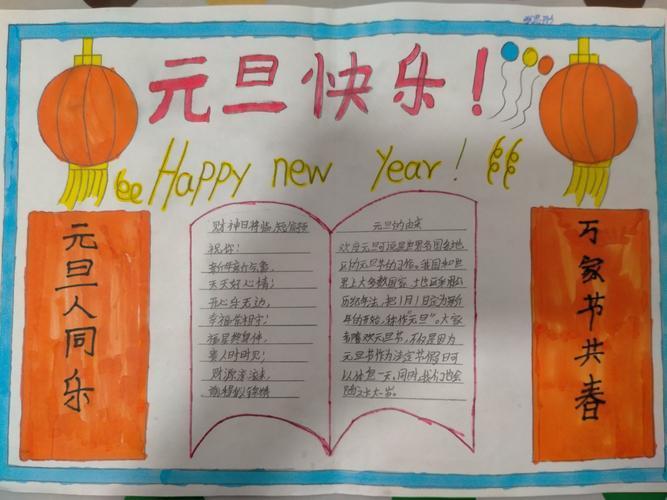 元旦快乐！
Happy new year!
元旦人同乐
万家节共春
财神日将临,短信预
祝你:
新年新气象,
天天好心情;
开心乐无边,
幸福常相守;
福星照身体,
贵人时时见;
财源滚滚来,
前程似锦绣
元旦的由来
欢度元旦可
的元旦节的习俗。我国和世
界上大多数国家
历纪年法，把1月1日定为新
年的开始，称作"元旦"。大家
喜欢元旦节，不仅是因为
元旦节作为法定节假日可
以休息一天，同时，我们也会
随之长大一岁。